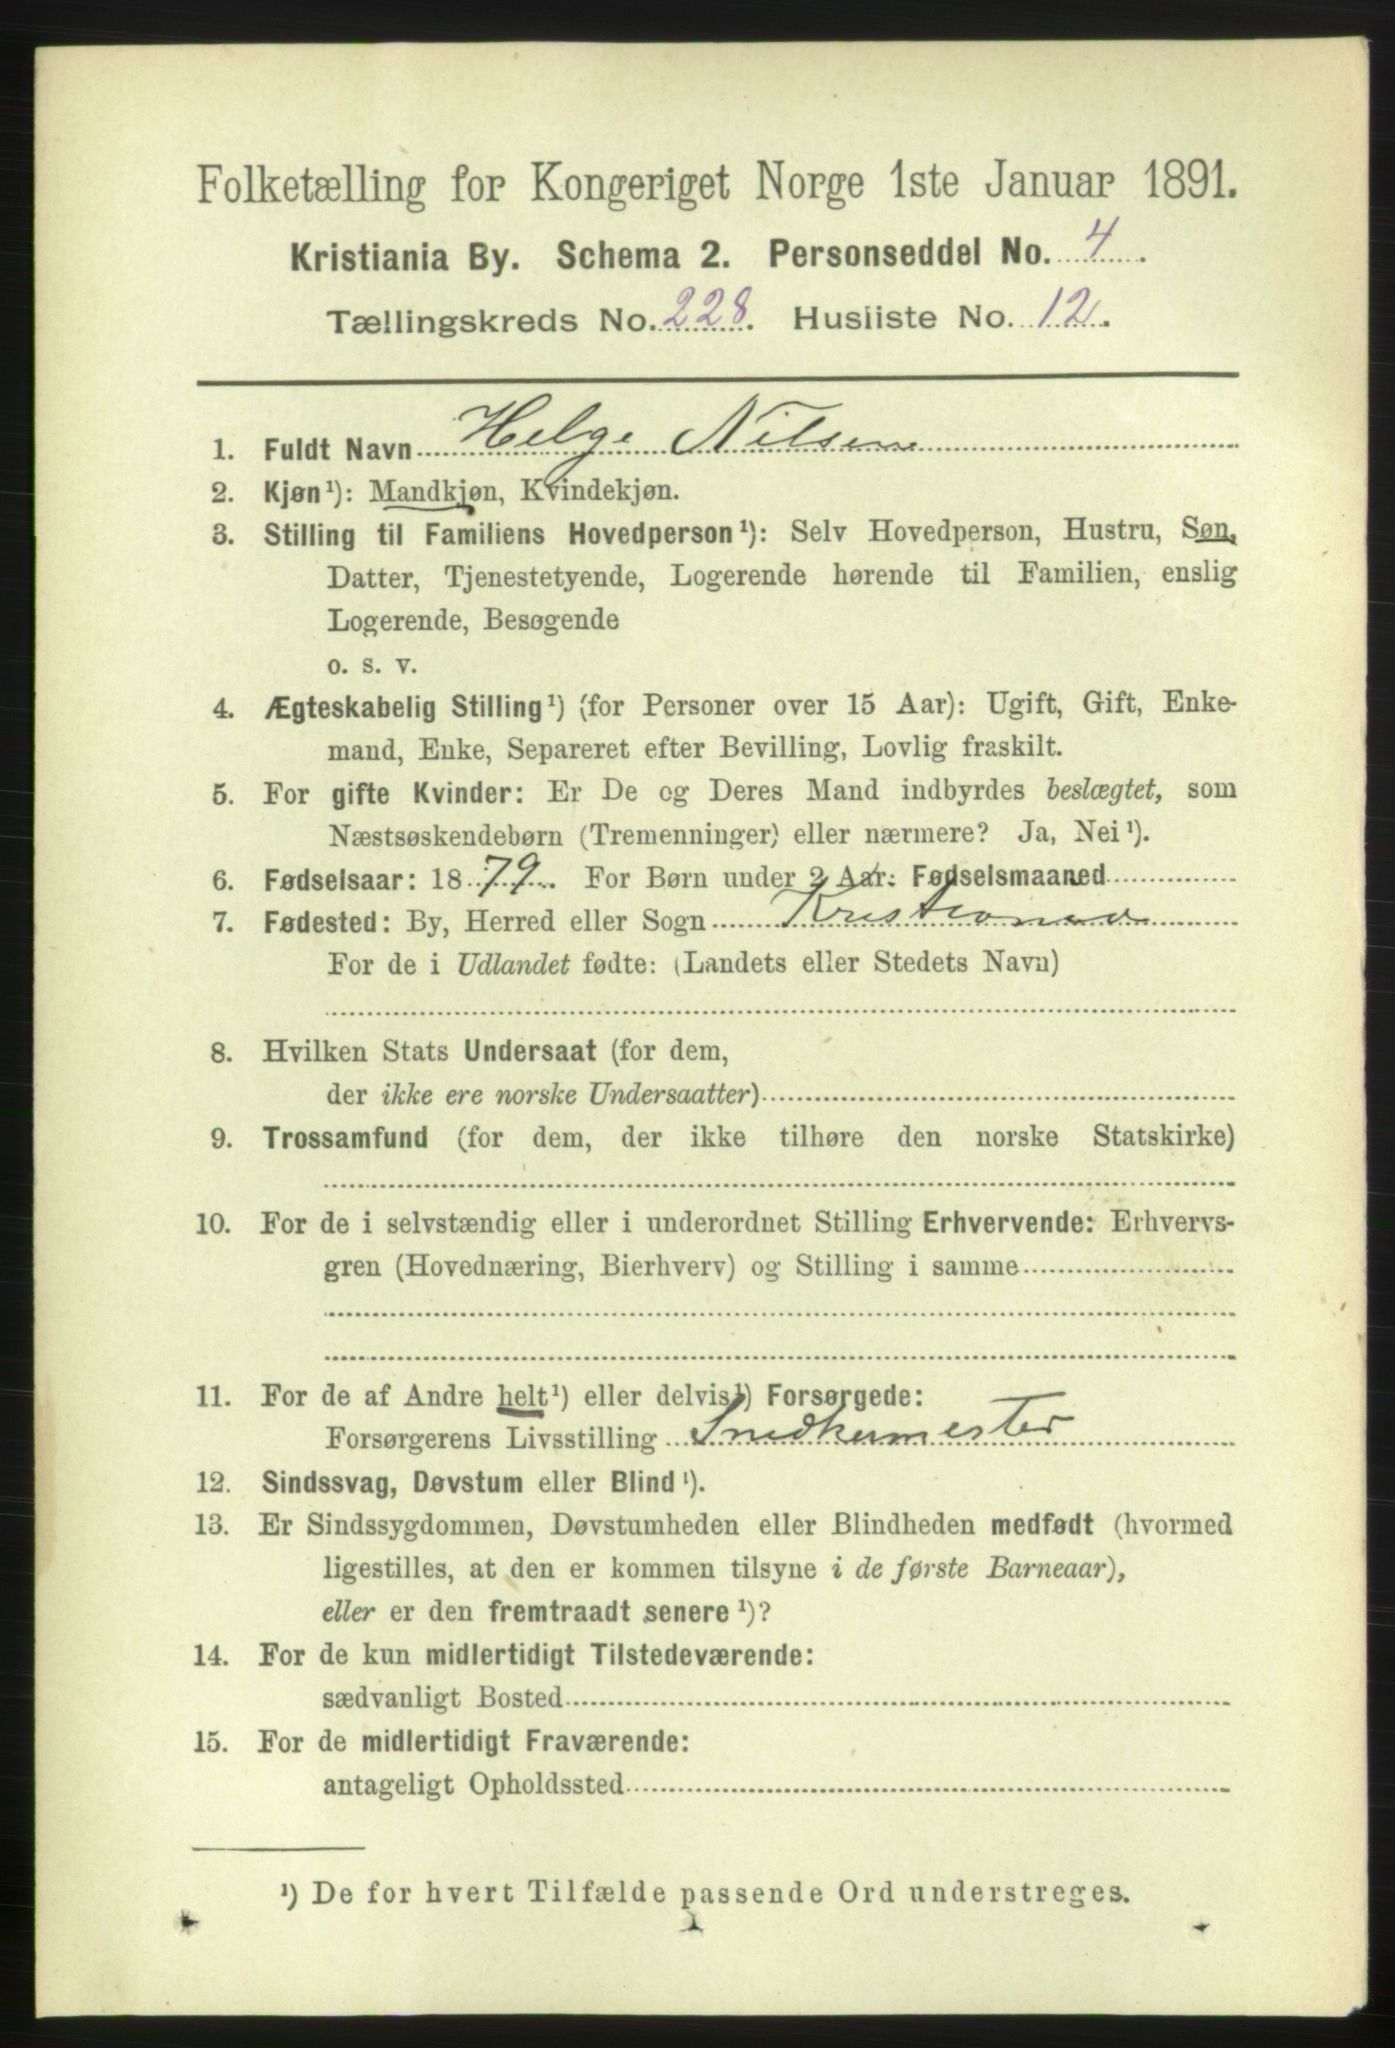 Folketælling for Kongeriget Norge 1ste Januar 1891.
Kristiania By. Schema 2. Personseddel No. 4.
Tællingskreds No. 228. Husliste No. 12.
1. Fuldt Navn Helge Nilsen
2. Kjøn¹): Mandkjøn, Kvindekjøn.
3. Stilling til Familiens Hovedperson¹): Selv Hovedperson, Hustru, Søn,
Datter, Tjenestetyende, Logerende hørende til Familien, enslig
Logerende, Besøgende
o. s. v.
4. Ægteskabelig Stilling¹) (for Personer over 15 Aar): Ugift, Gift, Enke-
mand, Enke, Separeret efter Bevilling, Lovlig fraskilt.
5. For gifte Kvinder: Er De og Deres Mand indbyrdes beslægtet, som
Næstsøskendebørn (Tremenninger) eller nærmere? Ja, Nei¹).
6. Fødselsaar: 1879. For Børn under 2 Aar: Fødselsmaaned
7. Fødested: By, Herred eller Sogn Kristiania
For de i Udlandet fødte: (Landets eller Stedets Navn)
8. Hvilken Stats Undersaat (for dem,
der ikke ere norske Undersaatter)
9. Trossamfund (for dem, der ikke tilhøre den norske Statskirke)
10. For de i selvstændig eller i underordnet Stilling Erhvervende: Erhvervs-
gren (Hovednæring, Bierhverv) og Stilling i samme
11. For de af Andre helt¹) eller delvis¹) Forsørgede:
Forsørgerens Livsstilling Snedkermester
12. Sindssvag, Døvstum eller Blind¹).
13. Er Sindssygdommen, Døvstumheden eller Blindheden medfødt (hvormed
ligestilles, at den er kommen tilsyne i de første Barneaar),
eller er den fremtraadt senere¹)?
14. For de kun midlertidigt Tilstedeværende:
sædvanligt Bosted
15. For de midlertidigt Fraværende:
antageligt Opholdssted
¹) De for hvert Tilfælde passende Ord understreges.
1